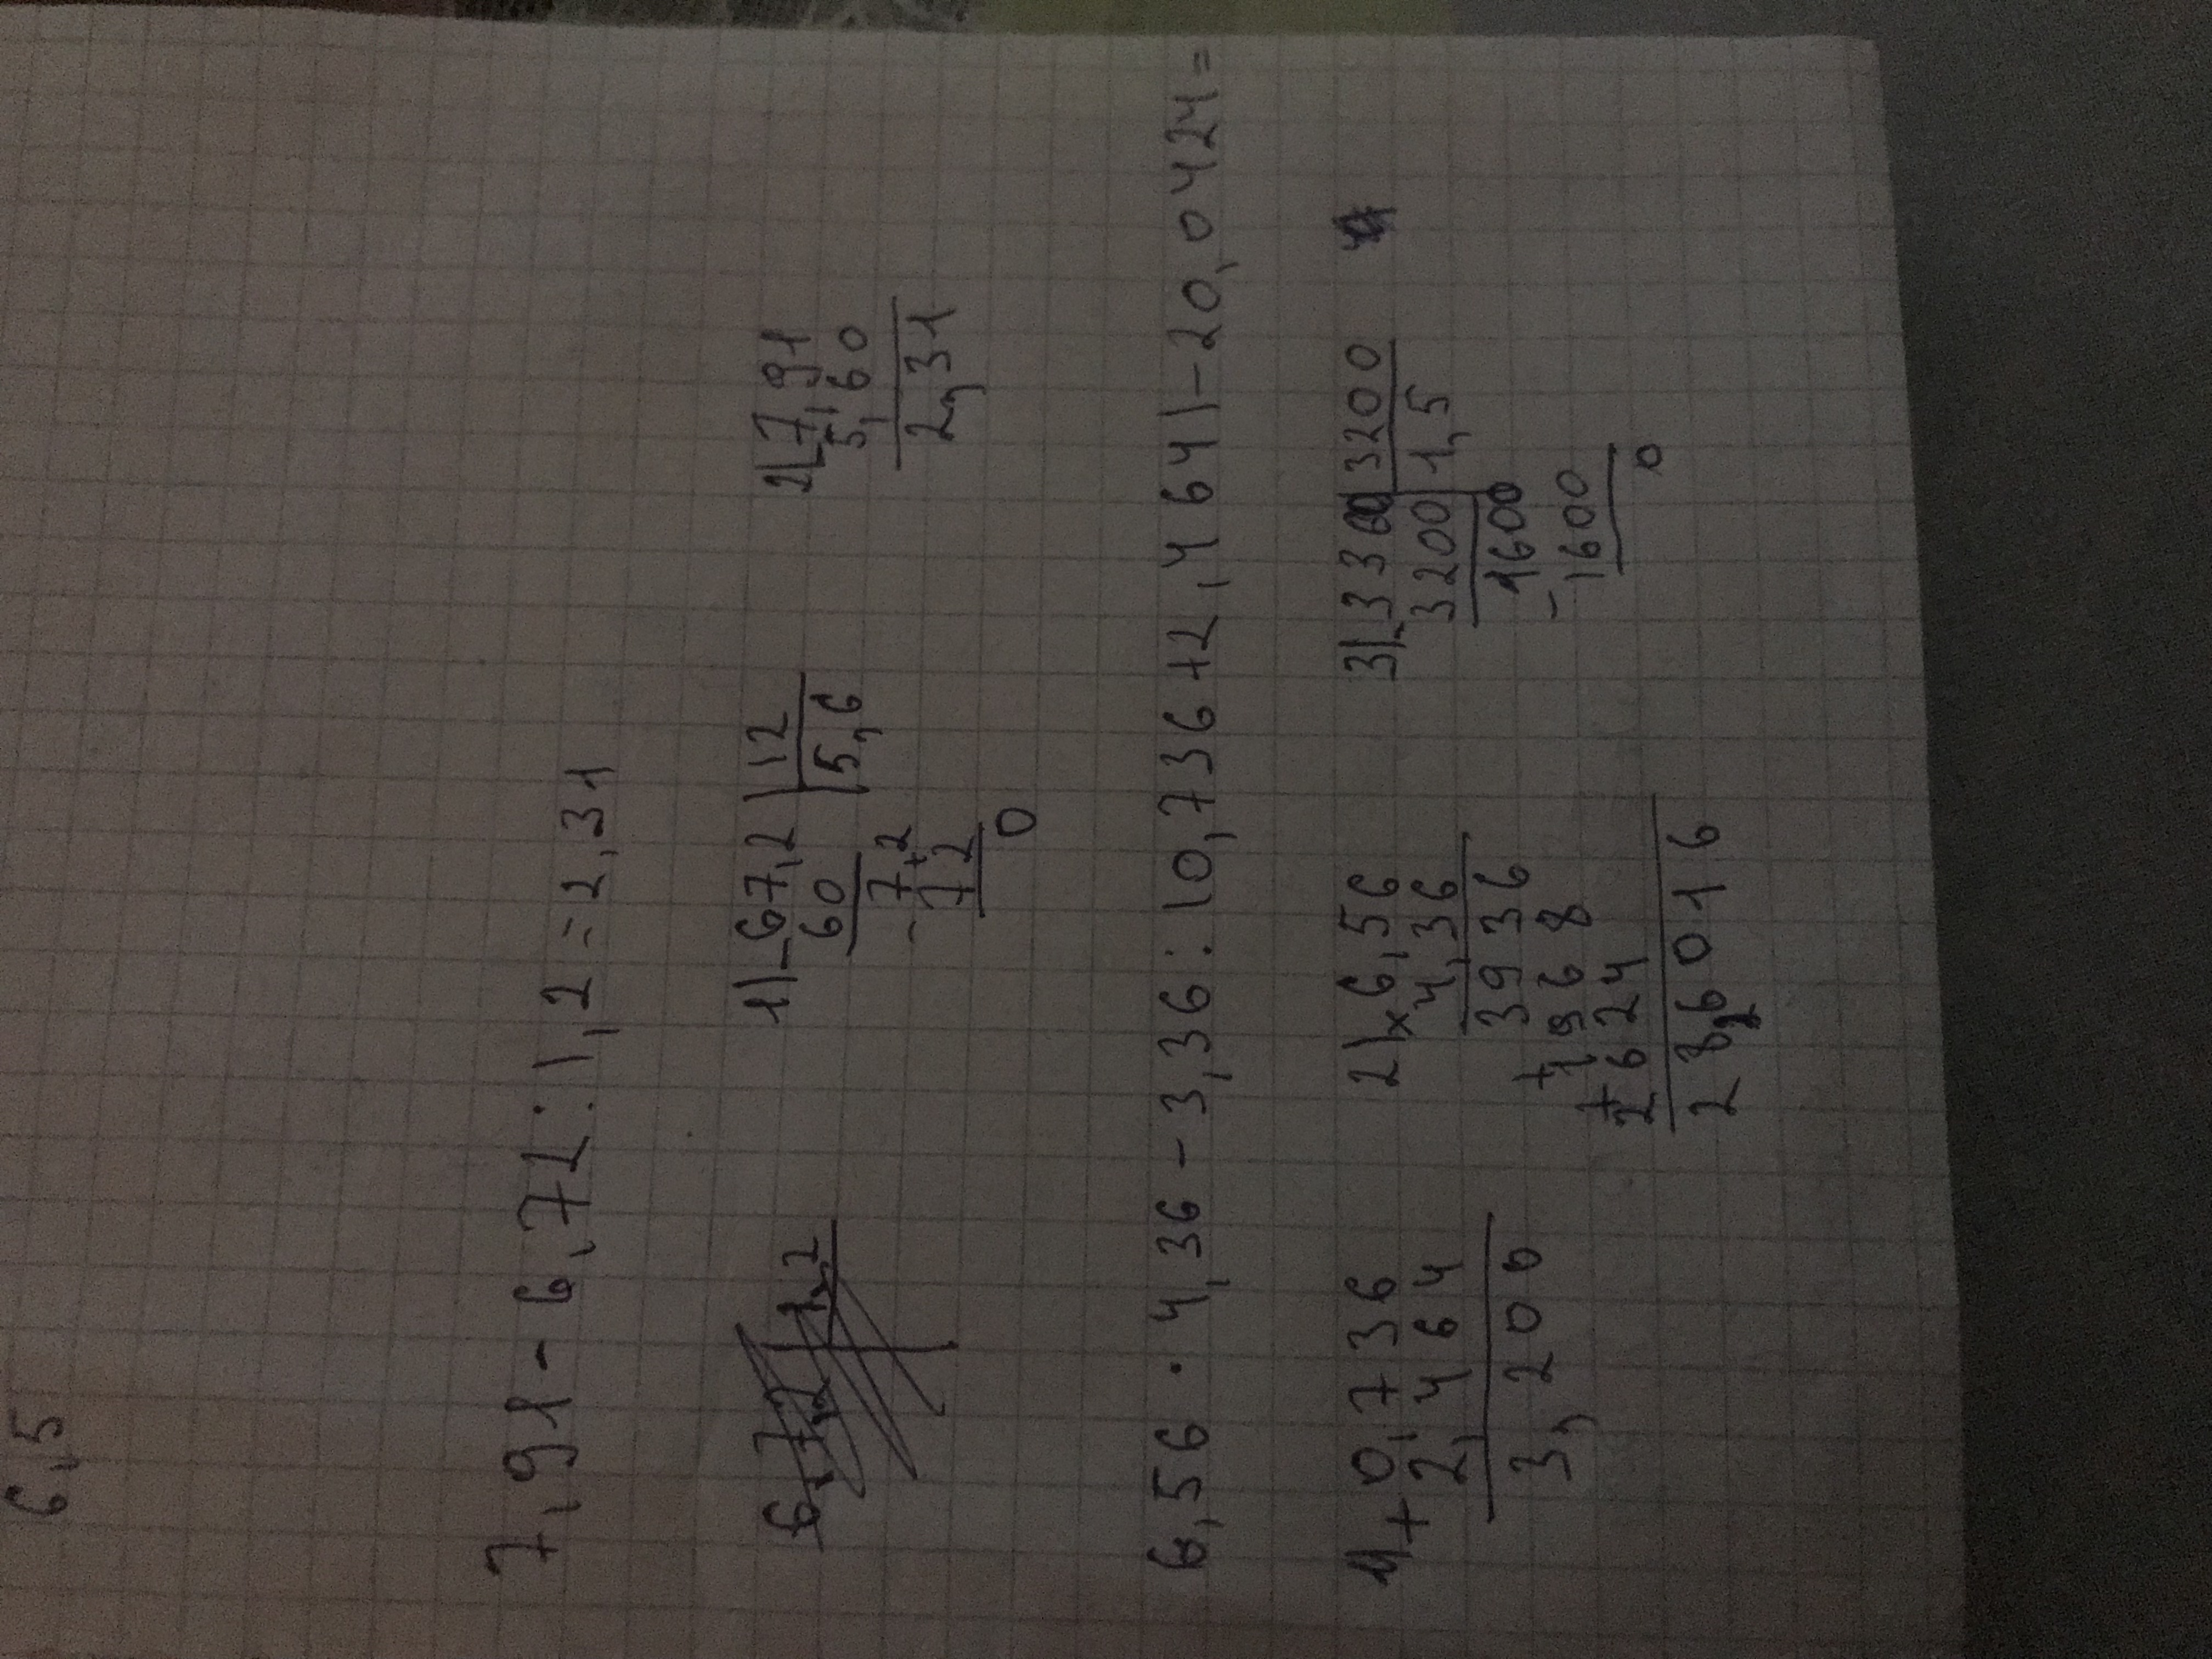 6,5
7,91 - 6,72 : 1,2 = 2,31
6,72 | 1,2
1) - 67,2 | 12
60 | 5,6
- 7,2
72
0
2) - 7,91
5,60
2,31
6,56 · 4,36 - 3,36 : (0,736 + 2,464) - 20,0424 =
1) + 0,736
2,464
3,200
2) × 6,56
4,36
3936
+ 1968
+ 2624
28,6016
3) - 33 3200
3200 | 1,5
1600
- 1600
0